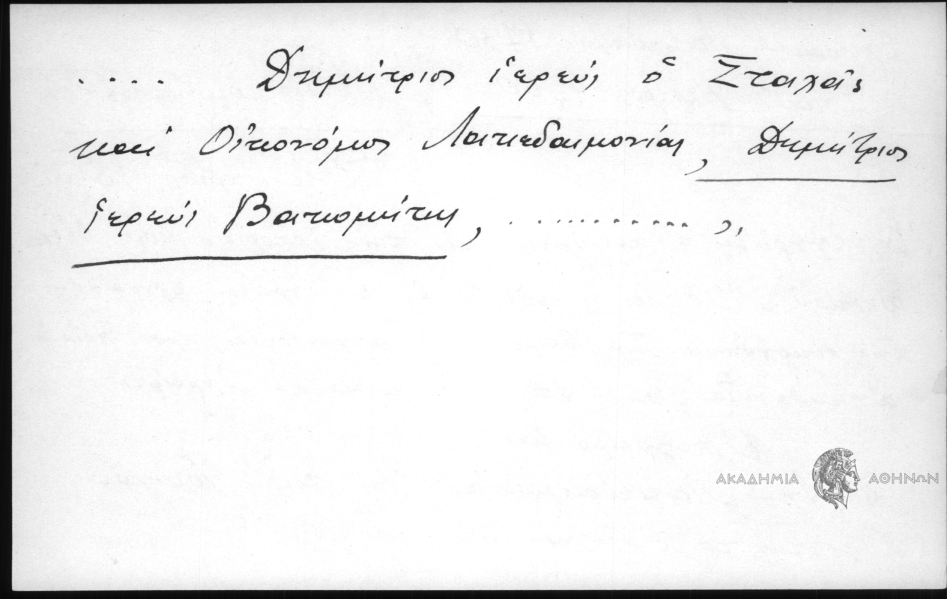 .... Δημήτριος ἱερεύς ὁ Σταχᾶς
καί Οἰκονόμος Λακεδαιμονίας, Δημήτριος
ἱερεύς Βατικομίτης, ............ ,,
ΑΚΑΔΗΜΙΑ ΑΘΗΝΩΝ